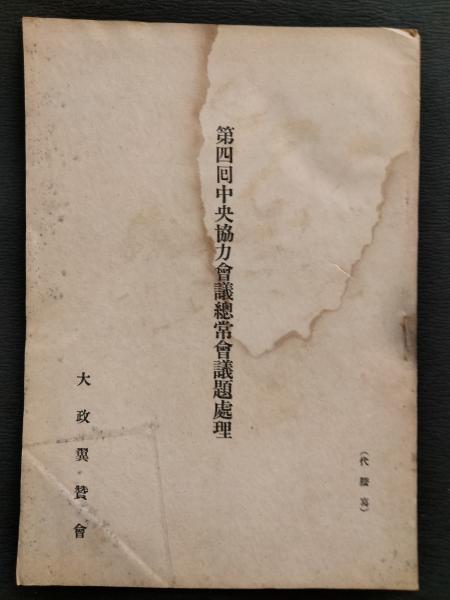 (代謄寫)
第四回中央協力會議總常會議題處理
大政翼贊會